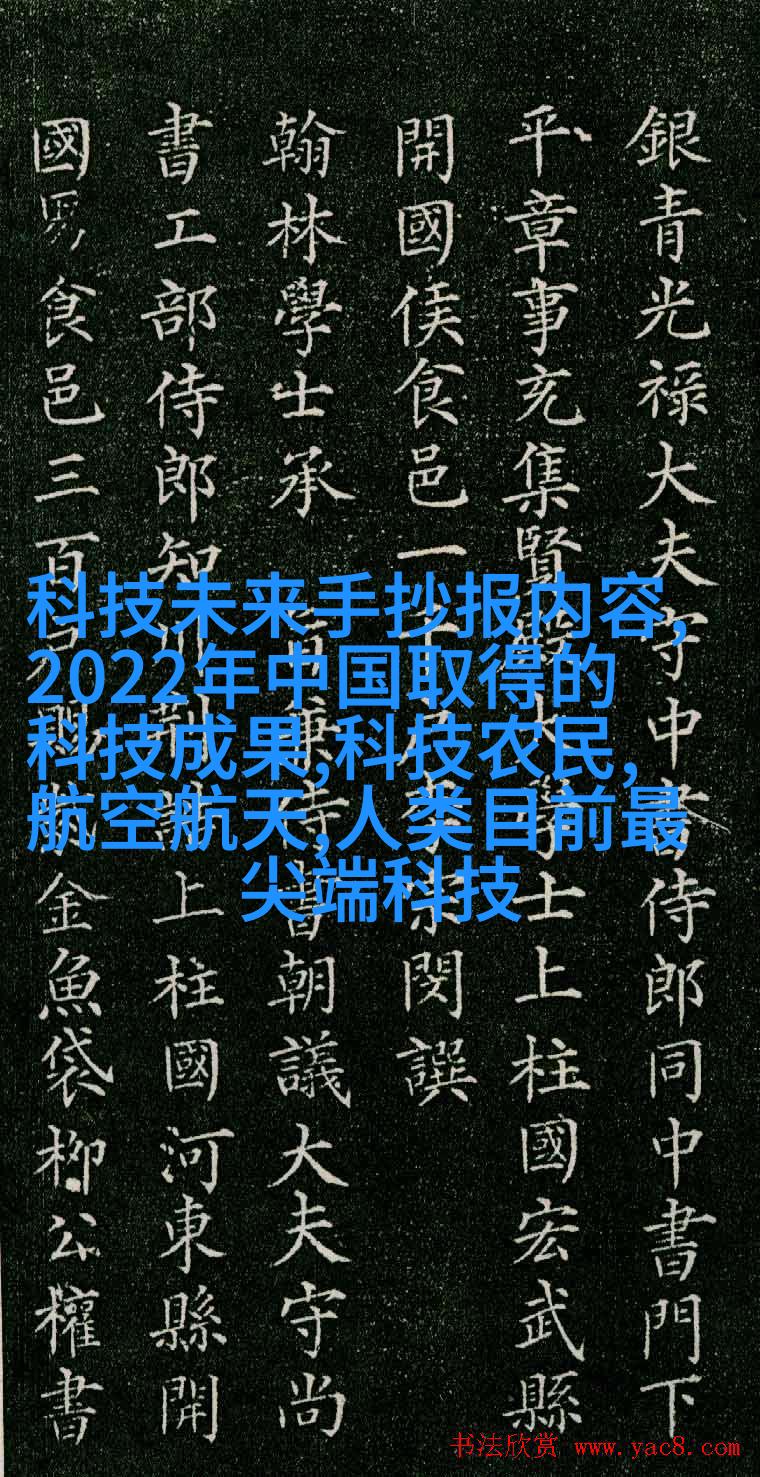 銀青光禄大夫守中書侍郎同中書門下
平章事充集賢大學士上柱國宏武縣
開國侯食邑一宗閔撰
翰林學士承旨兼侍書朝議大夫守尚
書工部侍郎知上柱國河東縣開
國男食邑三百金魚袋柳公權書
科技未来手抄报内容,
2022年中国取得的
科技成果,科技农民,
航空航天,人类目前最
尖端科技
书法欣赏 www.yac8.com